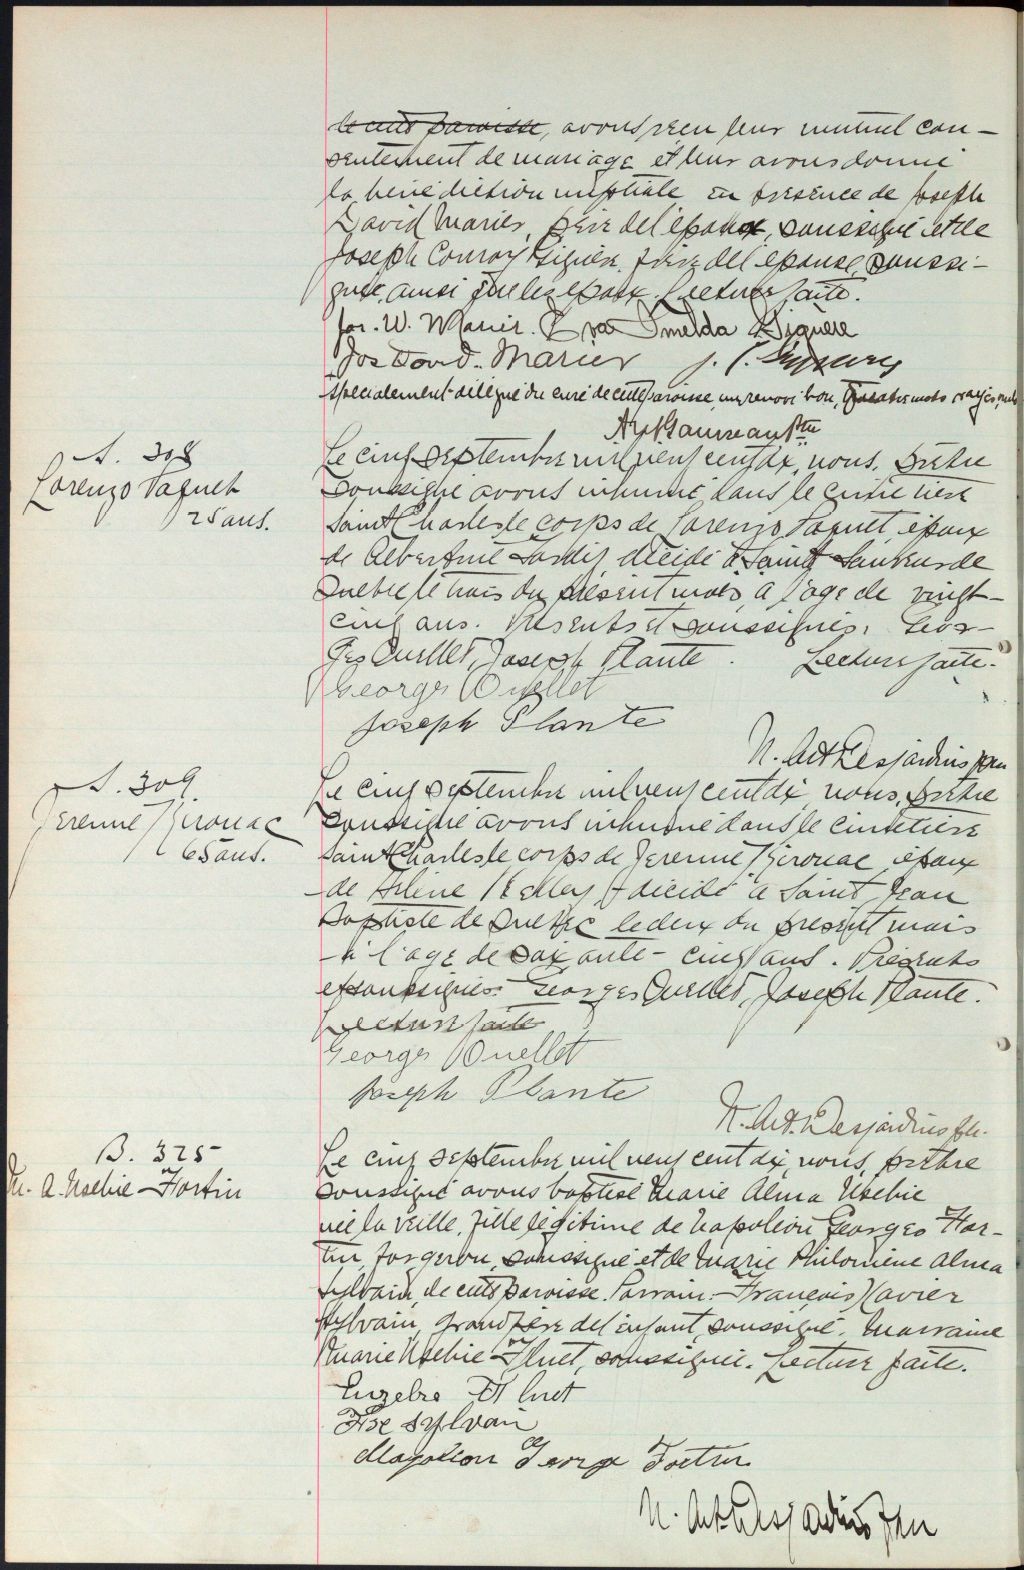 de cette paroisse, avons reçu leur mutuel con-
sentement de mariage et leur avons donné
la bénédiction nuptiale en présence de Joseph
David Marier, père de l'époux, soussigné et de
Joseph Conroy Giguère, frère de l'épouse, soussi-
gné, ainsi que les époux. Lecture faite.
Jos. W. Marier. Eva Imelda Giguère
Jos David. Marier J. C.
spécialement délégué du curé de cette paroisse, un renvoi bon, quatre mots rayés, nuls
Ptre
S. 308
Lorenzo Paquet
25 ans.
Le cinq septembre mil neuf cent dix, nous, prêtre
soussigné avons inhumé dans le cimetière
Saint Charles le corps de Lorenzo Paquet, époux
de Albertine Tardif, décédé à Saint Sauveur de
Québec le trois du présent mois, à l'age de vingt-
cinq ans. Présents et soussignés, Geor-
ges Ouellet, Joseph Plante. Lecture faite.
Georges Ouellet
Joseph Plante
N. Art. Desjardins ptre
S. 309.
Jérémie Kirouac
65 ans.
Le cinq septembre mil neuf cent dix, nous, prêtre
soussigné avons inhumé dans le cimetière
Saint Charles le corps de Jérémie Kirouac, époux
de Arline Kelley, décédé à Saint Jean
Baptiste de Québec le deux du présent mois
à l'age de soixante-cinq ans. Présents
et soussignés. Georges Ouellet, Joseph Plante.
Lecture faite
Georges Ouellet
Joseph Plante
N. Art. Desjardins ptr.
B. 325
M. A. Usebie Fortin
Le cinq septembre mil neuf cent dix, nous, prêtre
soussigné avons baptisé Marie Alma Usebie
née la veille, fille légitime de Napoléon Georges For-
tin, forgeron, soussigné et de Marie Philomène Alma
Sylvain, de cette paroisse. Parrain: François Xavier
Sylvain, grand père de l'enfant, soussigné. Marraine
Marie Usebie Fluet, soussignée. Lecture faite.
Euzebe Fluet
Frs Sylvain
Napoleon George Fortin
N. Art. Desjardins ptre